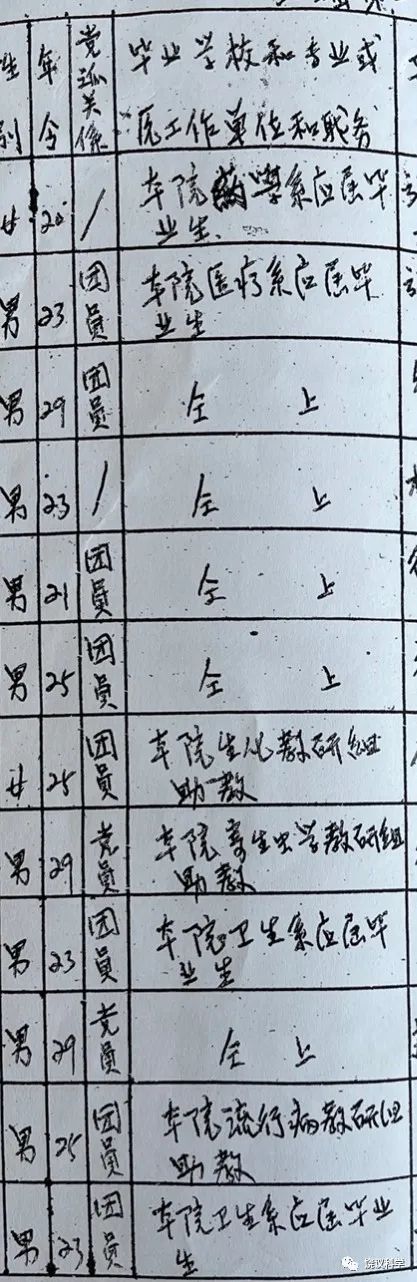 性别
年令
党派关係
毕业学校和专业或
原工作单位和职务
女 20 / 本院药學系应届毕
业生.
男 23 团员 本院医疗系应届毕
业生
男 29 团员 仝 上
男 23 / 仝 上
男 21 团员 仝 上
男 25 团员 仝 上
女 25 团员 本院生化教研组
助教
男 29 党员 本院寄生虫学教研组
助教
男 23 团员 本院卫生系应届毕
业生
男 29 党员 仝 上
男 25 团员 本院流行病教研组
助教
男 23 团员 本院卫生系应届毕业
生
饶议科学